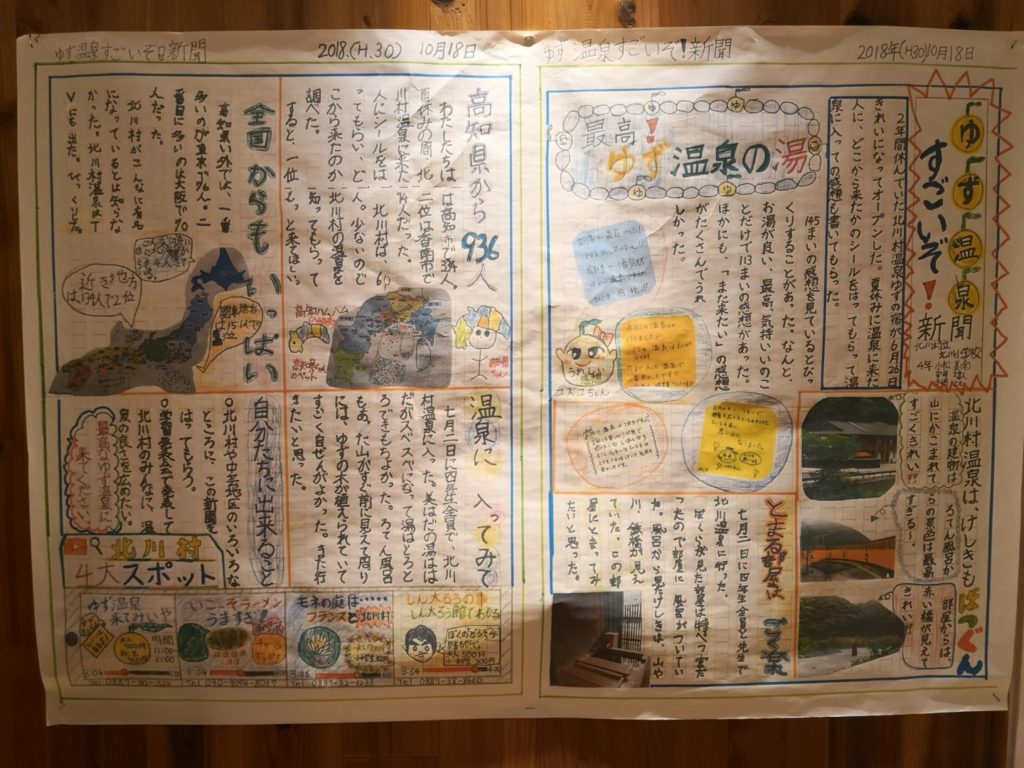 ゆず温泉すごいぞ!新聞
2018年(H30)10月18日
ゆず温泉
すごいぞ!新聞
北川村立
北川小学校
4年
2年間休んでいた北川村温泉ゆずの宿が6月26日
きれいになってオープンした。夏休みに温泉に来た
人に、どこから来たかのシールをはってもらって温
泉に入っての感想も書いてもらった。
最高!
ゆず温泉の湯
145まいの感想を見ているとびっ
くりすることがあった。なんと、
お湯が良い、最高、気持いいのこ
とだけで113まいの感想があった。
ほかにも、「また来たい」の感想
がたくさんでうれ
しかった。
ユズユちゃん
北川村温泉は、けしきもばつぐん
温泉の建物は
山にかこまれて
すごくきれい!!
ろてん風呂か
らの景色は最高
すぎる〜。
部屋からは、
赤い橋が見えて
きれい!!
とまる部屋はごう華
七月二日に四年生全員と先生で
北川温泉に行った。
ぼくらが見た部屋は特べつ室だ
ったので部屋に風呂がついてい
た。風呂から見たけしきは、山や
川、鉄橋が見え
ていた。この部
屋にとまってみ
たいと思った。
ゆず温泉すごいぞ!新聞
2018.(H.30) 10月18日
高知県から936人
わたしたちは、
夏休みの間、北
川村温泉に来た
人にシールをは
ってもらい、ど
こから来たのか
調べた。
すると、一位
は高知市で334人、
二位は香南市で
114人だった。
北川村は、6
人。少ないので
北川村の温泉を
知ってもらって
もっと来てほしい。
高知ハムハム
全国からもいっぱい
高知県い外では、一番
多いのが東京で71人。二
番目に多いのは大阪で70
人だった。
北川村がこんなに有名
になっているとは知らな
かった。北川村温泉はT
Vにも出た。びっくりだ。
近き地方
は134人で2位
関東地方
は151人で
1位
温泉に入ってみて
七月二日に四年生全員で、北川
村温泉に入った。美はだの湯はは
だがスベスベになって湯はとろと
ろでき持ちよかった。ろてん風呂
もあった。山がすぐ前に見えて周り
には、ゆずの木が植えられていて
すごく自ぜんがよかった。また行
きたいと思った。
自分たちに出来ること
○北川村や中芸地区のいろいろな
ところに、この新聞を
はってもらう。
○学習発表会で発表して
北川村のみんなに、温
泉の良さを広めたい。
最高なゆず温泉に
来てください!
北川村
4大スポット
しん太ろうの事
しん太ろう館でわかる
3:54
Tel 0887-38-8600
モネの庭は……
フランスと
3:46
Tel 0887-32-1233
いごっそラーメン
うますぎ!
3:04
ゆず温泉
来てみいや
時間
11:00
21:00
3:04